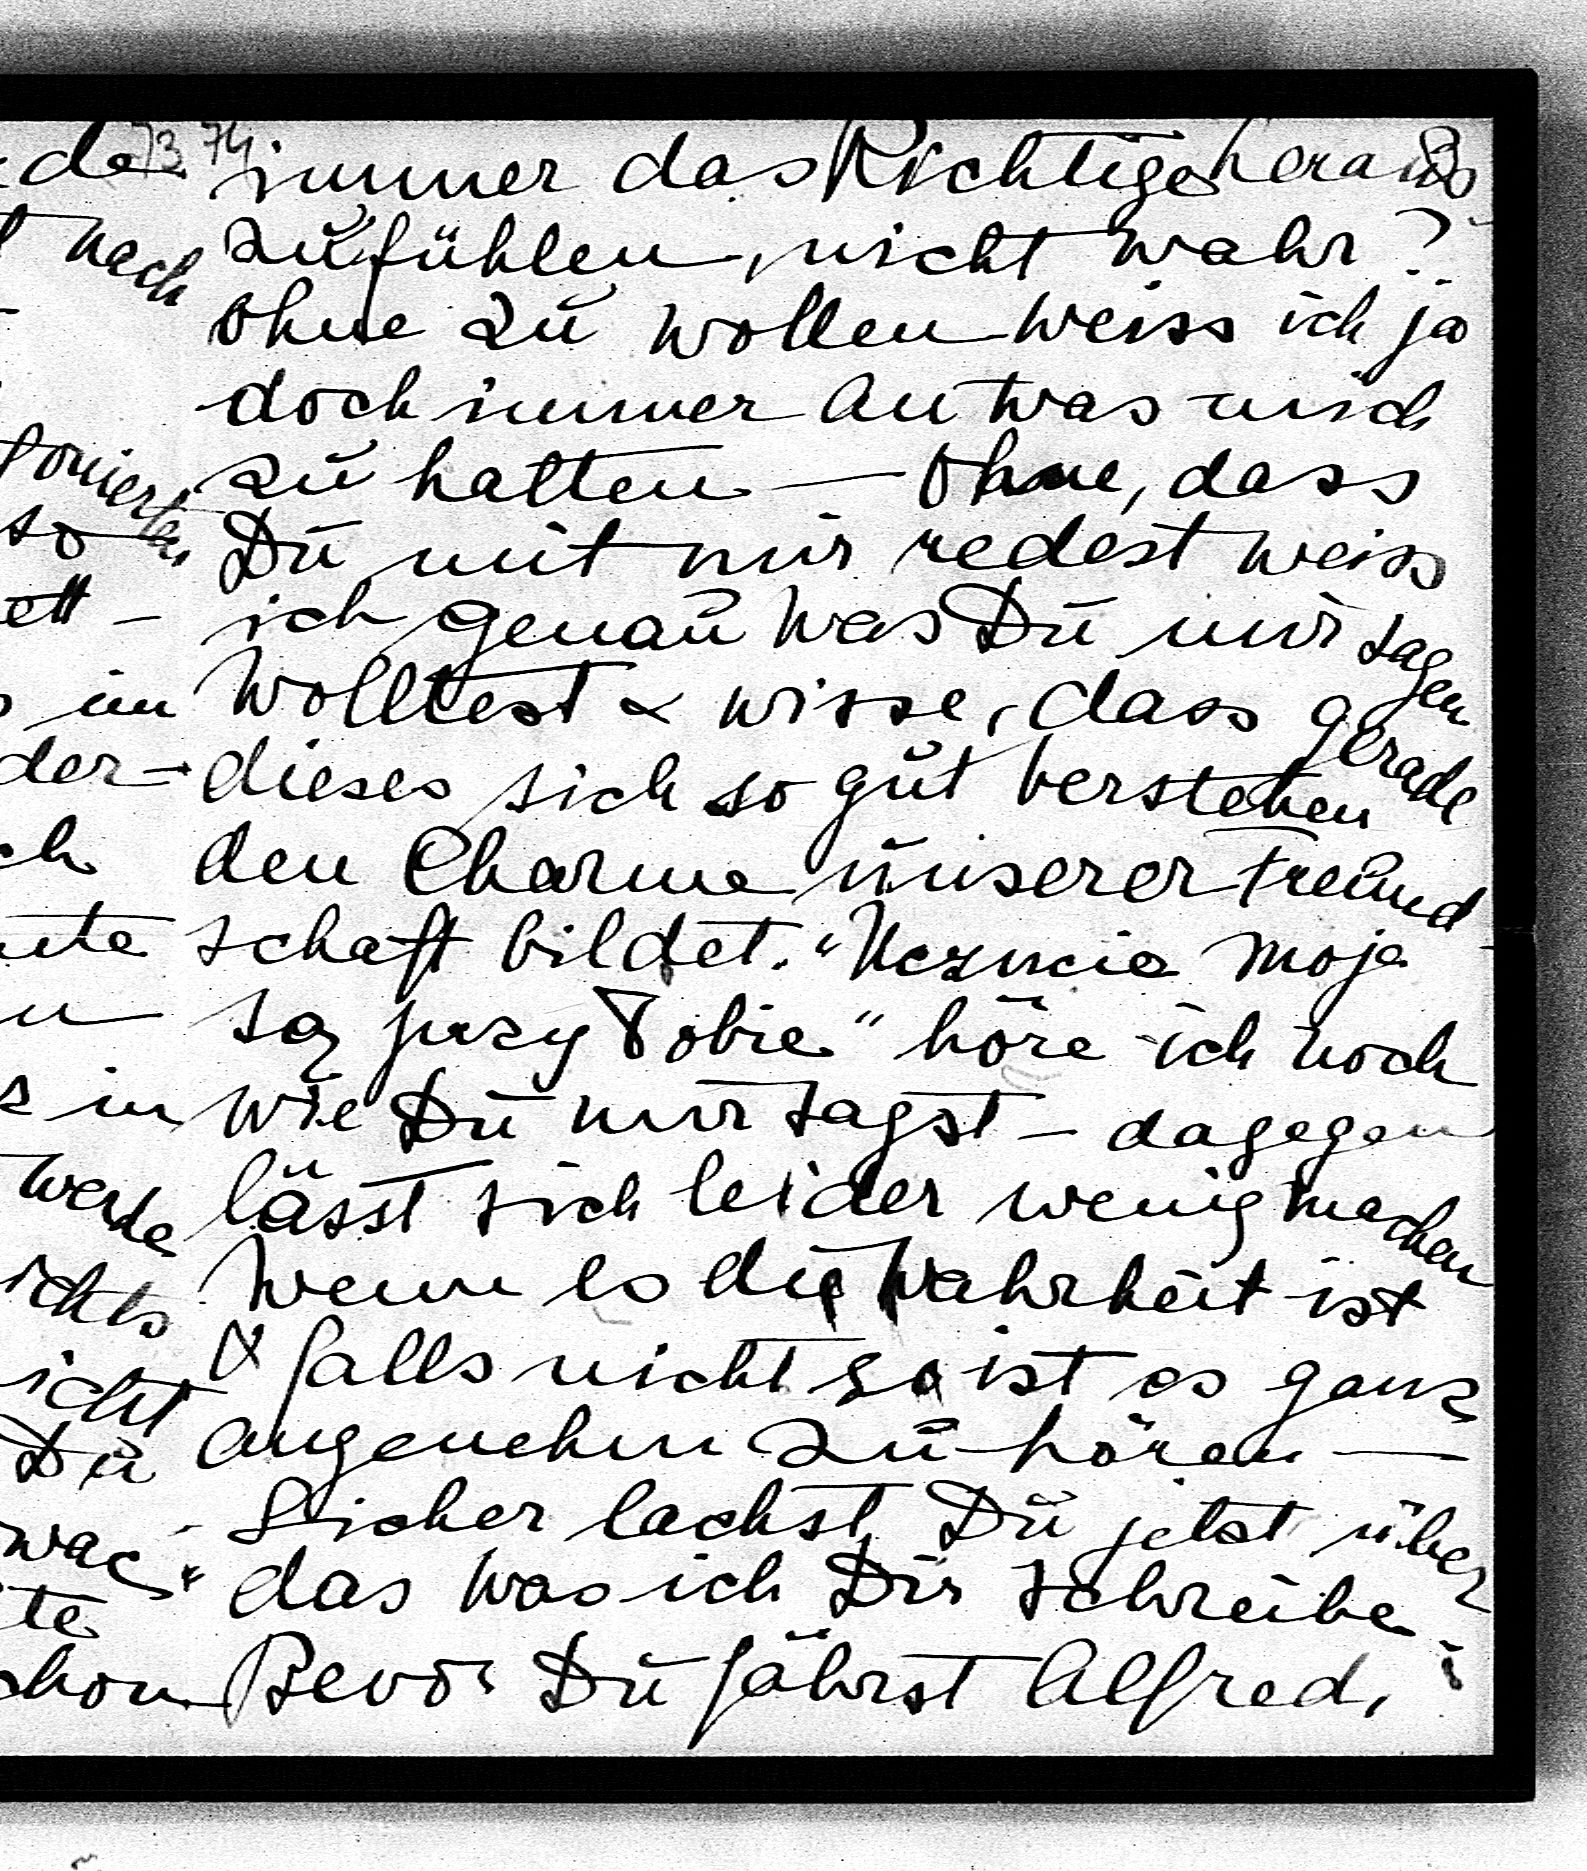 73 74
immer das Richtige heraus
zufühlen, nicht wahr?
ohne zu wollen weiss ich ja
doch immer an was mich
zu halten — ohne, dass
Du mit mir redest weiss
ich genau was Du mir sagen
wolltest & wisse, dass gerade
dieses sich so gut verstehen
den Charme unserer Freund-
schaft bildet. "Uczucia moje
są przy Tobie" höre ich noch
wie Du mir sagst — dagegen
lässt sich leider wenig machen
wenn es die Wahrheit ist
& falls nicht so ist es ganz
angenehm zu hören —
Sicher lachst Du jetzt über
das was ich Dir schreibe
Bevor Du fährst Alfred,
nach
so
im
der
in
werde
Du